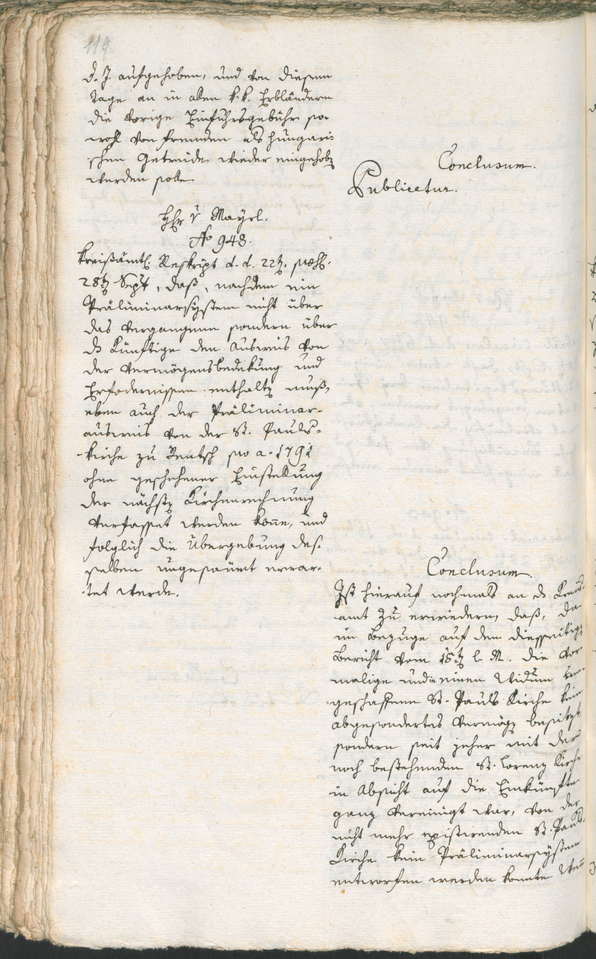 119.
d. J. aufgehoben, und von diesem
Tage an in allen k. k. Erbländern
die vorige Einfuhrsgebühr so-
wohl von fremden als hungari-
schen Getreide wieder eingeholt
werden solle.
Conclusum.
Publicetur.
Hr v Mayrl.
No 948.
Kreisämtl. Reskript d. d. 22t. präs.
28t Sept, daß, nachdem ein
Präliminarsystem nicht über
das Vergangene sondern über
das Künftige den Ausweis von
der Vermögensbedekung und
Erfordernissen enthalten muß,
eben auch der Präliminar-
ausweis von der St. Pauls-
kirche zu Rentsch pro a. 1792
ohne geschehener Einstellung
der nächsten Kirchenrechnung
verfasset werden könne, und
folglich die Übergebung des-
selben ungesäumt erwar-
tet werde.
Conclusum.
Ist hierauf nochmals an das Kreis-
amt zu erwiedern, daß, da
im Bezuge auf den diesseitigen
Bericht vom 15ten l. M. die vor-
malige und in einen Widum
geschaffene St. Pauls Kirche kein
abgesondertes Vermögen besitzt
sondern seit jeher mit der
noch bestehenden St. Lorenz Kirche
in Absicht auf die Einkünfte
ganz vereinigt war, von der
nicht mehr existirenden St. Pauls
Kirche kein Präliminarsystem
entworfen werden konnte